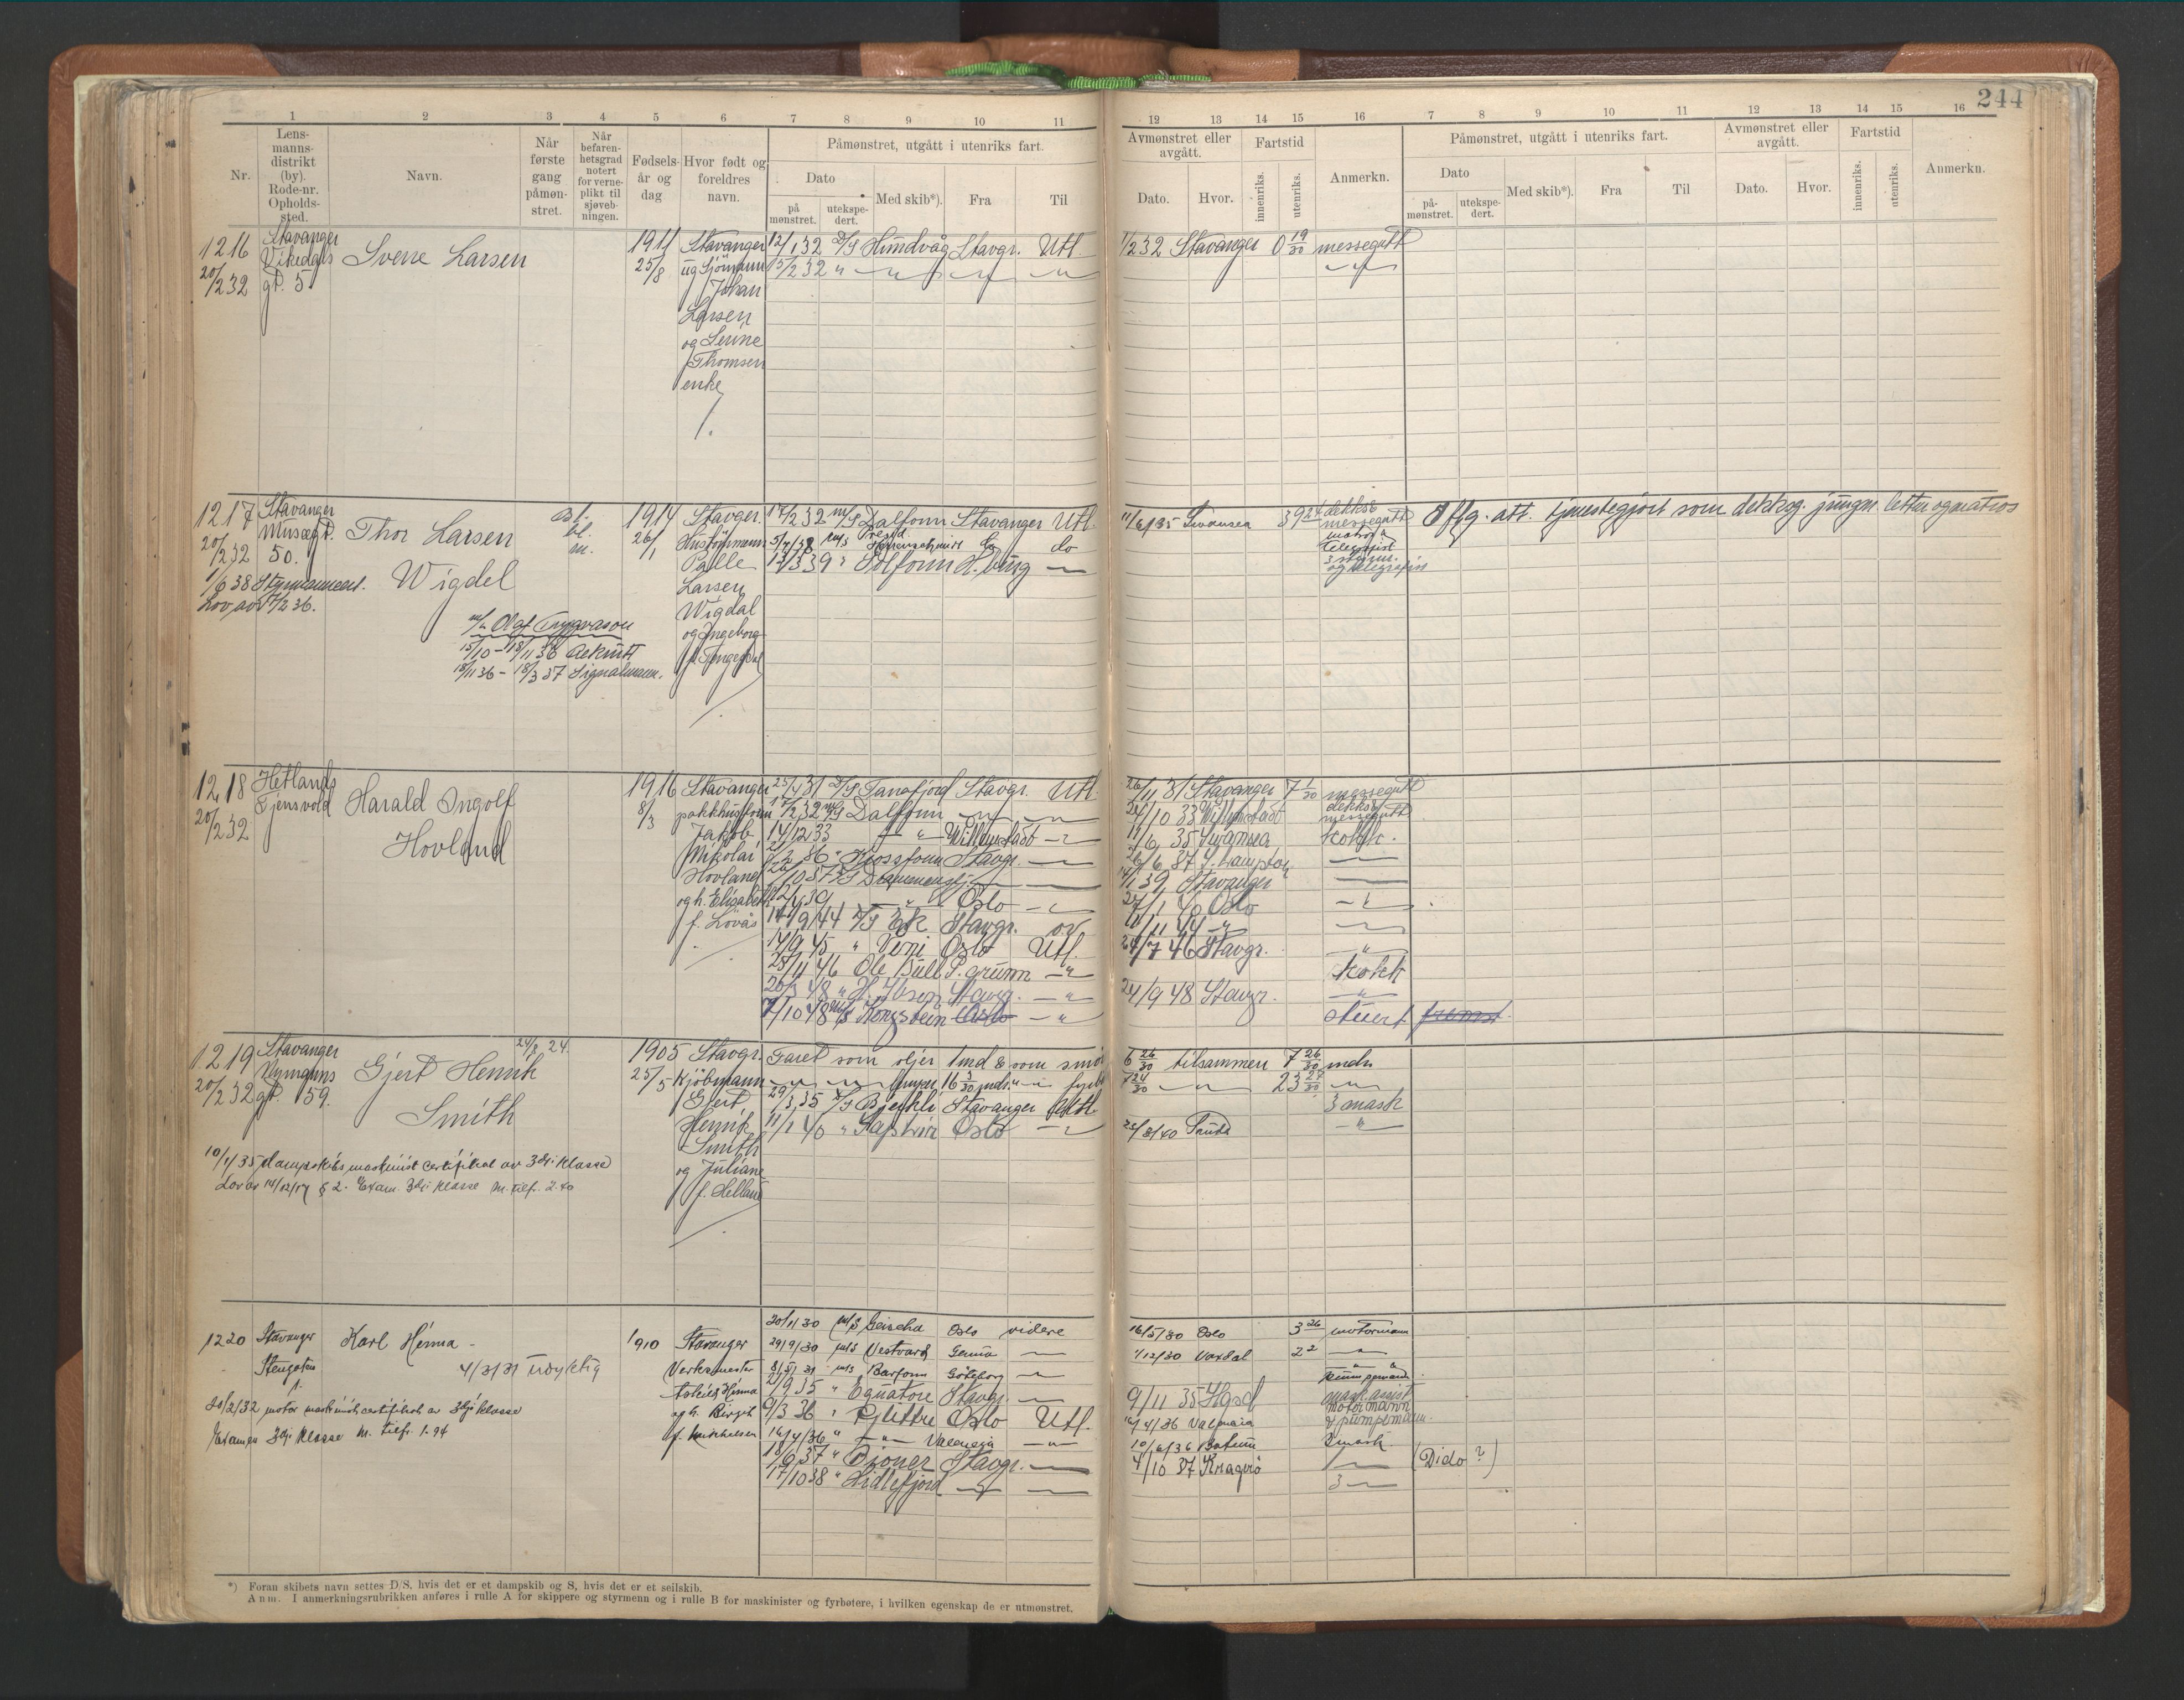 244
1 2 3 4 5 6 7 8 9 10 11 12 13 14 15 16 7 8 9 10 11 12 13 14 15 16
Nr.
Lens-
manns-
distrikt
(by).
Rode-nr.
Opholds-
sted.
Navn.
Når
første
gang
påmøn-
stret.
Når
befaren-
hetsgrad
notert
for verne-
plikt til
sjøveb-
ningen.
Fødsels-
år og
dag
Hvor født og
foreldres
navn.
Påmønstret, utgått i utenriks fart.
Dato
på
mønstret.
utekspe-
dert.
Med skib*).
Fra
Til
Avmønstret eller
avgått.
Dato.
Hvor.
Fartstid
innenriks.
utenriks.
Anmerkn.
Påmønstret, utgått i utenriks fart.
Dato
på-
mønstret.
utekspe-
dert.
Med skib*).
Fra
Til
Avmønstret eller
avgått.
Dato.
Hvor.
Fartstid
innenriks.
utenriks.
Anmerkn.
1216
20/2 32
Stavanger
Vikedals
gt. 5
Sverre Larsen
1911
25/8
Stavanger
Johan
Larsen
og Serine
Thomsen
enke
12/1 32 D/S Hundvåg Stavgr. Utl.
15/2 32 " — " —
1/2 32 Stavanger 0 19/30 messegutt
1217
20/2 32
Stavanger
Museegt.
50.
1/6 38 Styrmannsert.
Lov av 17/2 36.
Thor Larsen
Wigdel
bl.
m.
1914
26/1
Stavger.
Palle
Larsen
Wigdal
og Ingeborg
Olaf Trygvason
15/10 - 18/11 36 Rekrutt
18/11 36 - 18/3 37 Signalmann.
17/2 32 M/S Dalfonn Stavanger Utl.
do
13/3 39 " Solfonn H.sung —
11/6 35 Swansea 39 24 dekksg
messegutt
telegrafist
og telegrafist
Iflg. att. tjenestegjort som dekksg. jungm. lettm og matros
1218
20/2 32
Hetlands
Tjensvold
Harald Ingolf
Hovland
1916
8/3
Stavanger
Jakob
Mikolai
Hovland
og h. Elisabeth
f. Lovås
25/4 31 D/S Tanafjord Stavgr. Utl.
17/2 32 M/S Dalfonn — " —
14/12 33 — " — Willemstad — " —
" Kossfonn Stavgr. —
Oslo — " —
14/9 44 D/S Ek Stavgr.
14/9 45 " Voni Oslo Utl.
28/11 46 Ole Bull P. grunn — " —
20/3 48 " H. Ibsen Stavgr. — " —
7/10 48 M/S Kongstein Oslo — " —
26/11 31 Stavanger 7 1/30 messegutt
dekksg
24/10 33 Willemstad messegutt
11/6 35 Swansea kokk.
26/6 37 S.hampton —
14/1 39 Stavanger —
27/1 40 Oslo — " —
24/7 46 Stavgr. "
kokk
24/9 48 Stavgr. "
stuert
1219
20/2 32
Stavanger
Nymanns
gt. 59.
Gjert Henrik
Smith
24/8 24.
1905
25/5
Stavgr.
Kjöbmann
Gjert
Henrik
Smith
og Juliane
f. Helland
10/1 35 dampskibsmaskinist certifikat av 3dje klasse
Lov av 14/12/17 § 2. Exam. 3dje klasse M. tilf. 2.40
Faret som oljer 1 md & som smör
29/3 35 D/S Bjerkli Stavanger Utl.
11/1 40 " Oslo — " —
6 26/30 tilsammen 7 26/30 mdr
7 24/30 — " — 23 27/30 — " —
3 mask
— " —
1220
Stavanger
Karl Hinna -
4/3/31 udyktig
20/2/32 motor maskinist certifikat av 3dje klasse
Examen 3dje klasse M. tilf. 1.94
1910
Stavanger
Verkmester
og h. Birgit
f. Mikkelsen
20/1/30 M/S Geisha Oslo videre
29/9/30 M/S Vestvard Genua —
8/5/31 M/S Barfonn Göteborg —
2/9 35 " Equatore Stavgr. —
9/3 36 " Glittre Oslo Utl.
16/4/36 " — " — Valencia — " —
18/6 37 " Pioner Stavgr. —
17/10 38 " Hidlefjord — " —
16/5/30 Oslo 3 26 motormann
4/12/30 Vaxdal 2 2 — " —
pumpemann
9/11 35 Hgsd mask assist
motormann
& pumpemann.
16/4/36 Valencia
10/6/36 Batum 2 mask.
4/10 37 Kragerö —
3 —
(Dido ?)
*) Foran skibets navn settes D/S, hvis det er et dampskib og S, hvis det er et seilskib.
Anm. I anmerkningsrubrikken anføres i rulle A for skippere og styrmenn og i rulle B for maskinister og fyrbøtere, i hvilken egenskap de er utmønstret.